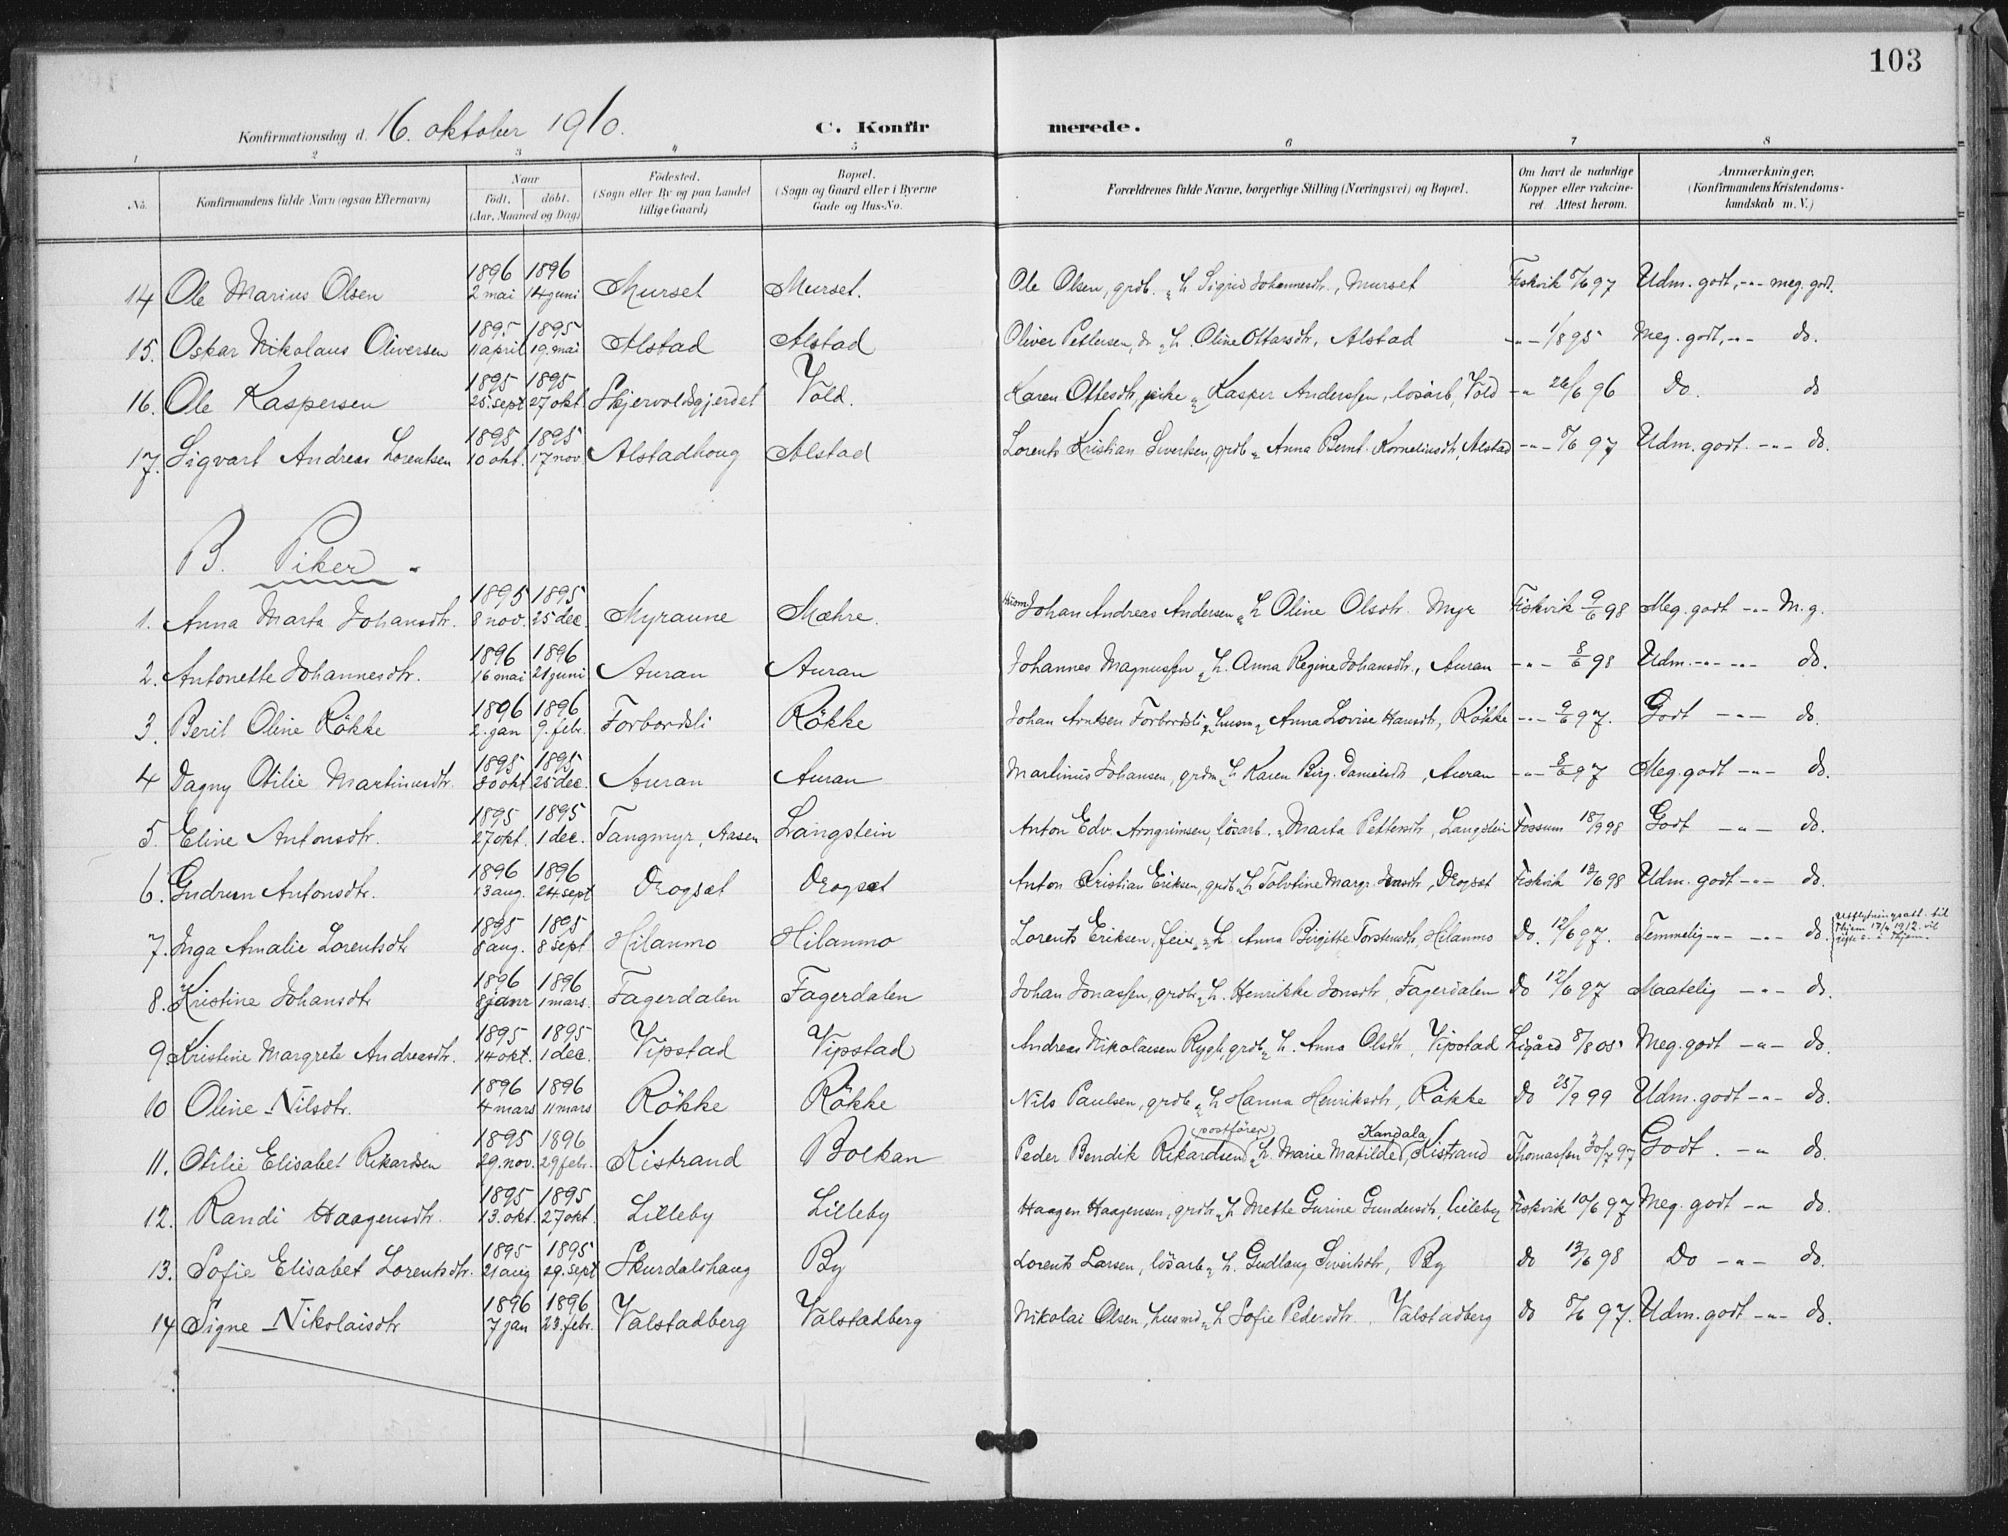 103
Konfirmationsdag d. 16. oktober 1910. C. Konfirmerede.
1 2 3 4 5 6 7 8
No. Konfirmandens fulde Navn (ogsaa Efternavn) Naar født. døbt. (Aar, Maaned og Dag) Fødested. (Sogn eller By og paa Landet tillige Gaard) Bopæl. (Sogn og Gaard eller i Byerne Gade og Hus-No. Forældrenes fulde Navne, borgerlige Stilling (Næringsvei) og Bopæl. Om havt de naturlige Kopper eller vakcineret. Attest herom. Anmærkninger, (Konfirmandens Kristendomskundskab m. V.)
14 Ole Marius Olsen 1896 2 mai 1896 14 juni Murset Murset. Ole Olsen, grdb. „ h. Sigrid Johannesdtr., Murset Fiskvik 8/6 97 Udm. godt, -„- meg. godt.
15. Oskar Nikolaus Oliversen 1895 11 april 1895 19. mai Alstad Alstad Oliver Pettersen, do „ h. Oline Ottarsdtr, Alstad -„- 1/8 95 Meg. godt, -„- do.
16. Ole Kaspersen 1895 25. sept 1895 27 okt Skjervoldsgjerdet Vold. Karen Ottesdtr, pike „ Kasper Anderssen, løsarb, Vold -„ 26/6 96 Do. do
17. Sigvart Andreas Lorentsen 1895 10 okt. 1895 17 nov Alstadhoug Alstad Lorents Kristian Sivertsen, grdb „ Anna Bernt. Korneliusdtr, Alstad -„- 8/6 97 Udm. godt. -„- do.
B. Piker
1. Anna Marta Johansdtr. 1895 8 nov. 1895 25 dec. Myraune Mæhre. Johan Andreas Andersen „ h Oline Olsdtr. Myr Fiskvik 9/6 98 Meg. godt -„- M. g.
2. Antonette Johannesdtr. 1896 16 mai 1896 21 juni Auran Auran Johannes Magnussen „ h. Anna Regine Johansdtr., Auran -„- 8/6 98 Udm. -„- -„- do.
3. Berit Oline Rökke 1896 2. jan 1896 9. febr. Forbordsli Rökke Johan Arntsen Forbordsli, husm „ Anna Lovise Hansdtr, Rökke -„- 9/6 97. Godt -„- do.
4 Dagny Otilie Martinusdtr. 1895 30 okt 1895 25 dec. Auran Auran Martinus Johansen, grdm „ h Karen Birg. Danielsdtr, Auran -„- 8/6 97 Meg. godt -„- do.
5. Eline Antonsdtr. 1895 27 okt. 1895 1 dec. Tangmyr, Aasen Langstein Anton Edv. Arngrimsen, løsarb. „ Marta Pettersdtr, Langstein Fossum 18/9 98 Godt -„- do.
6. Gudrun Antonsdtr. 1896 13 aug. 1896 24. sept Drogset Drogset Anton Kristian Eriksen, grdb „ h Tolvtine Margr. Jonsdtr, Drogset Fiskvik 13/6 98 Udm. godt -„- do.
7. Inga Amalie Lorentsdtr 1895 8 aug. 1895 8 sept Hilanmo Hilanmo Lorents Eriksen, feier „ h Anna Birgitte Torstensdtr, Hilanmo Do. 12/6 97. Temmelig -„- -„- do. Utflytningsatt. til Thjem 17/4 1912.
8. Kristine Johansdtr 1896 8 januar 1896 1 mars. Fagerdalen Fagerdalen Johan Jonassen, grdbr „ h. Henrikke Jonsdtr, Fagerdalen Do 12/6 97 Maatelig -„- do.
9. Kristine Margrete Andreasdtr. 1895 14 okt. 1895 1 dec. Vipstad Vipstad Andreas Nikolaisen Rygh, grdb „ h. Anna Olsdtr, Vipstad Ligård 8/8 05 Meg. godt -„- do.
10 Oline Nilsdtr. 1896 4 mars 1896 11 mars Rökke Rökke Nils Paulsen, grdb „ h Hanna Henriksdtr, Rökke Do 25/9 99 Udm. godt -„- do.
11. Otilie Elisabet Rikardsen 1895 29. nov. 1896 29 febr. Kistrand Bolkan Peder Bendik Rikardsen (postförer) „ h. Marie Matilde Kandala, Kistrand Thomassen 30/7 97 Godt. -„ do.
12. Randi Haagensdtr. 1895 13. okt. 1895 27 okt. Lilleby Lilleby Haagen Haagensen, grdbr „ h Mette Gurine Gundersdtr, Lilleby Fiskvik 10/6 97 Meg. godt -„ do.
13. Sofie Elisabet Lorentsdtr. 1895 21 aug 1895 29. sept Skurdalshaug By Lorents Larsen, løsarb „ h. Gudlaug Sivertsdtr, By Do 13/6 98 Do -„- do.
14 Signe Nikolaisdtr 1896 7 jan 1896 23. febr. Valstadberg Valstadberg Nikolai Olsen, husmd „ h Sofie Pedersdtr. Valstadberg Do 8/6 97. Udm. godt -„- do.